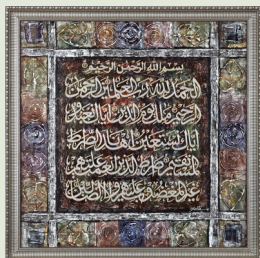 بسم الله الرحمن الرحيم
الحمد لله رب العلمين الرحمن
الرحيم ملك يوم الدين اياك نعبد و
اياك نستعين اهدنا الصرط
المستقيم صرط الذين انعمت عليهم
غير المغضوب عليهم ولا الضالين